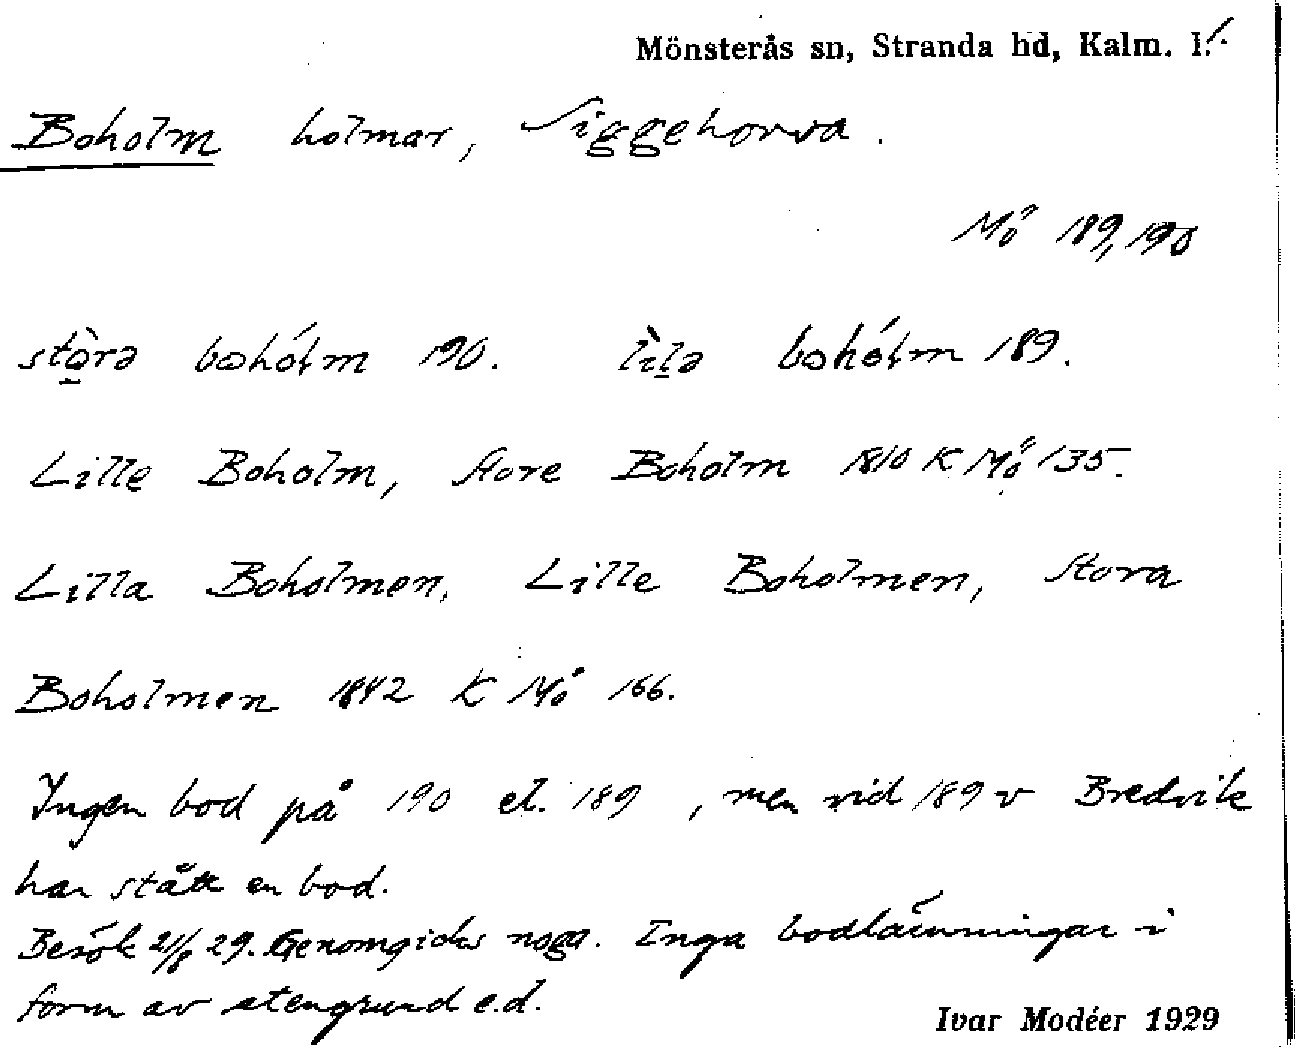 Mönsterås sn, Stranda hd, Kalm. l.
Boholm holmar, Siggehorva.
Mö 189, 190
stòrə bohólm 190. lìlə bohólm 189.
Lille Boholm, Store Boholm 1810 K Mö 135.
Lilla Boholmen, Lille Boholmen, Stora
Boholmen 1842 K Mö 166.
Ingen bod på 190 el. 189, men vid 189 v Bredvik
har stått en bod.
Besök 21/8 29. Genomgicks noga. Inga bodlämningar i
form av stengrund e.d.
Ivar Modéer 1929